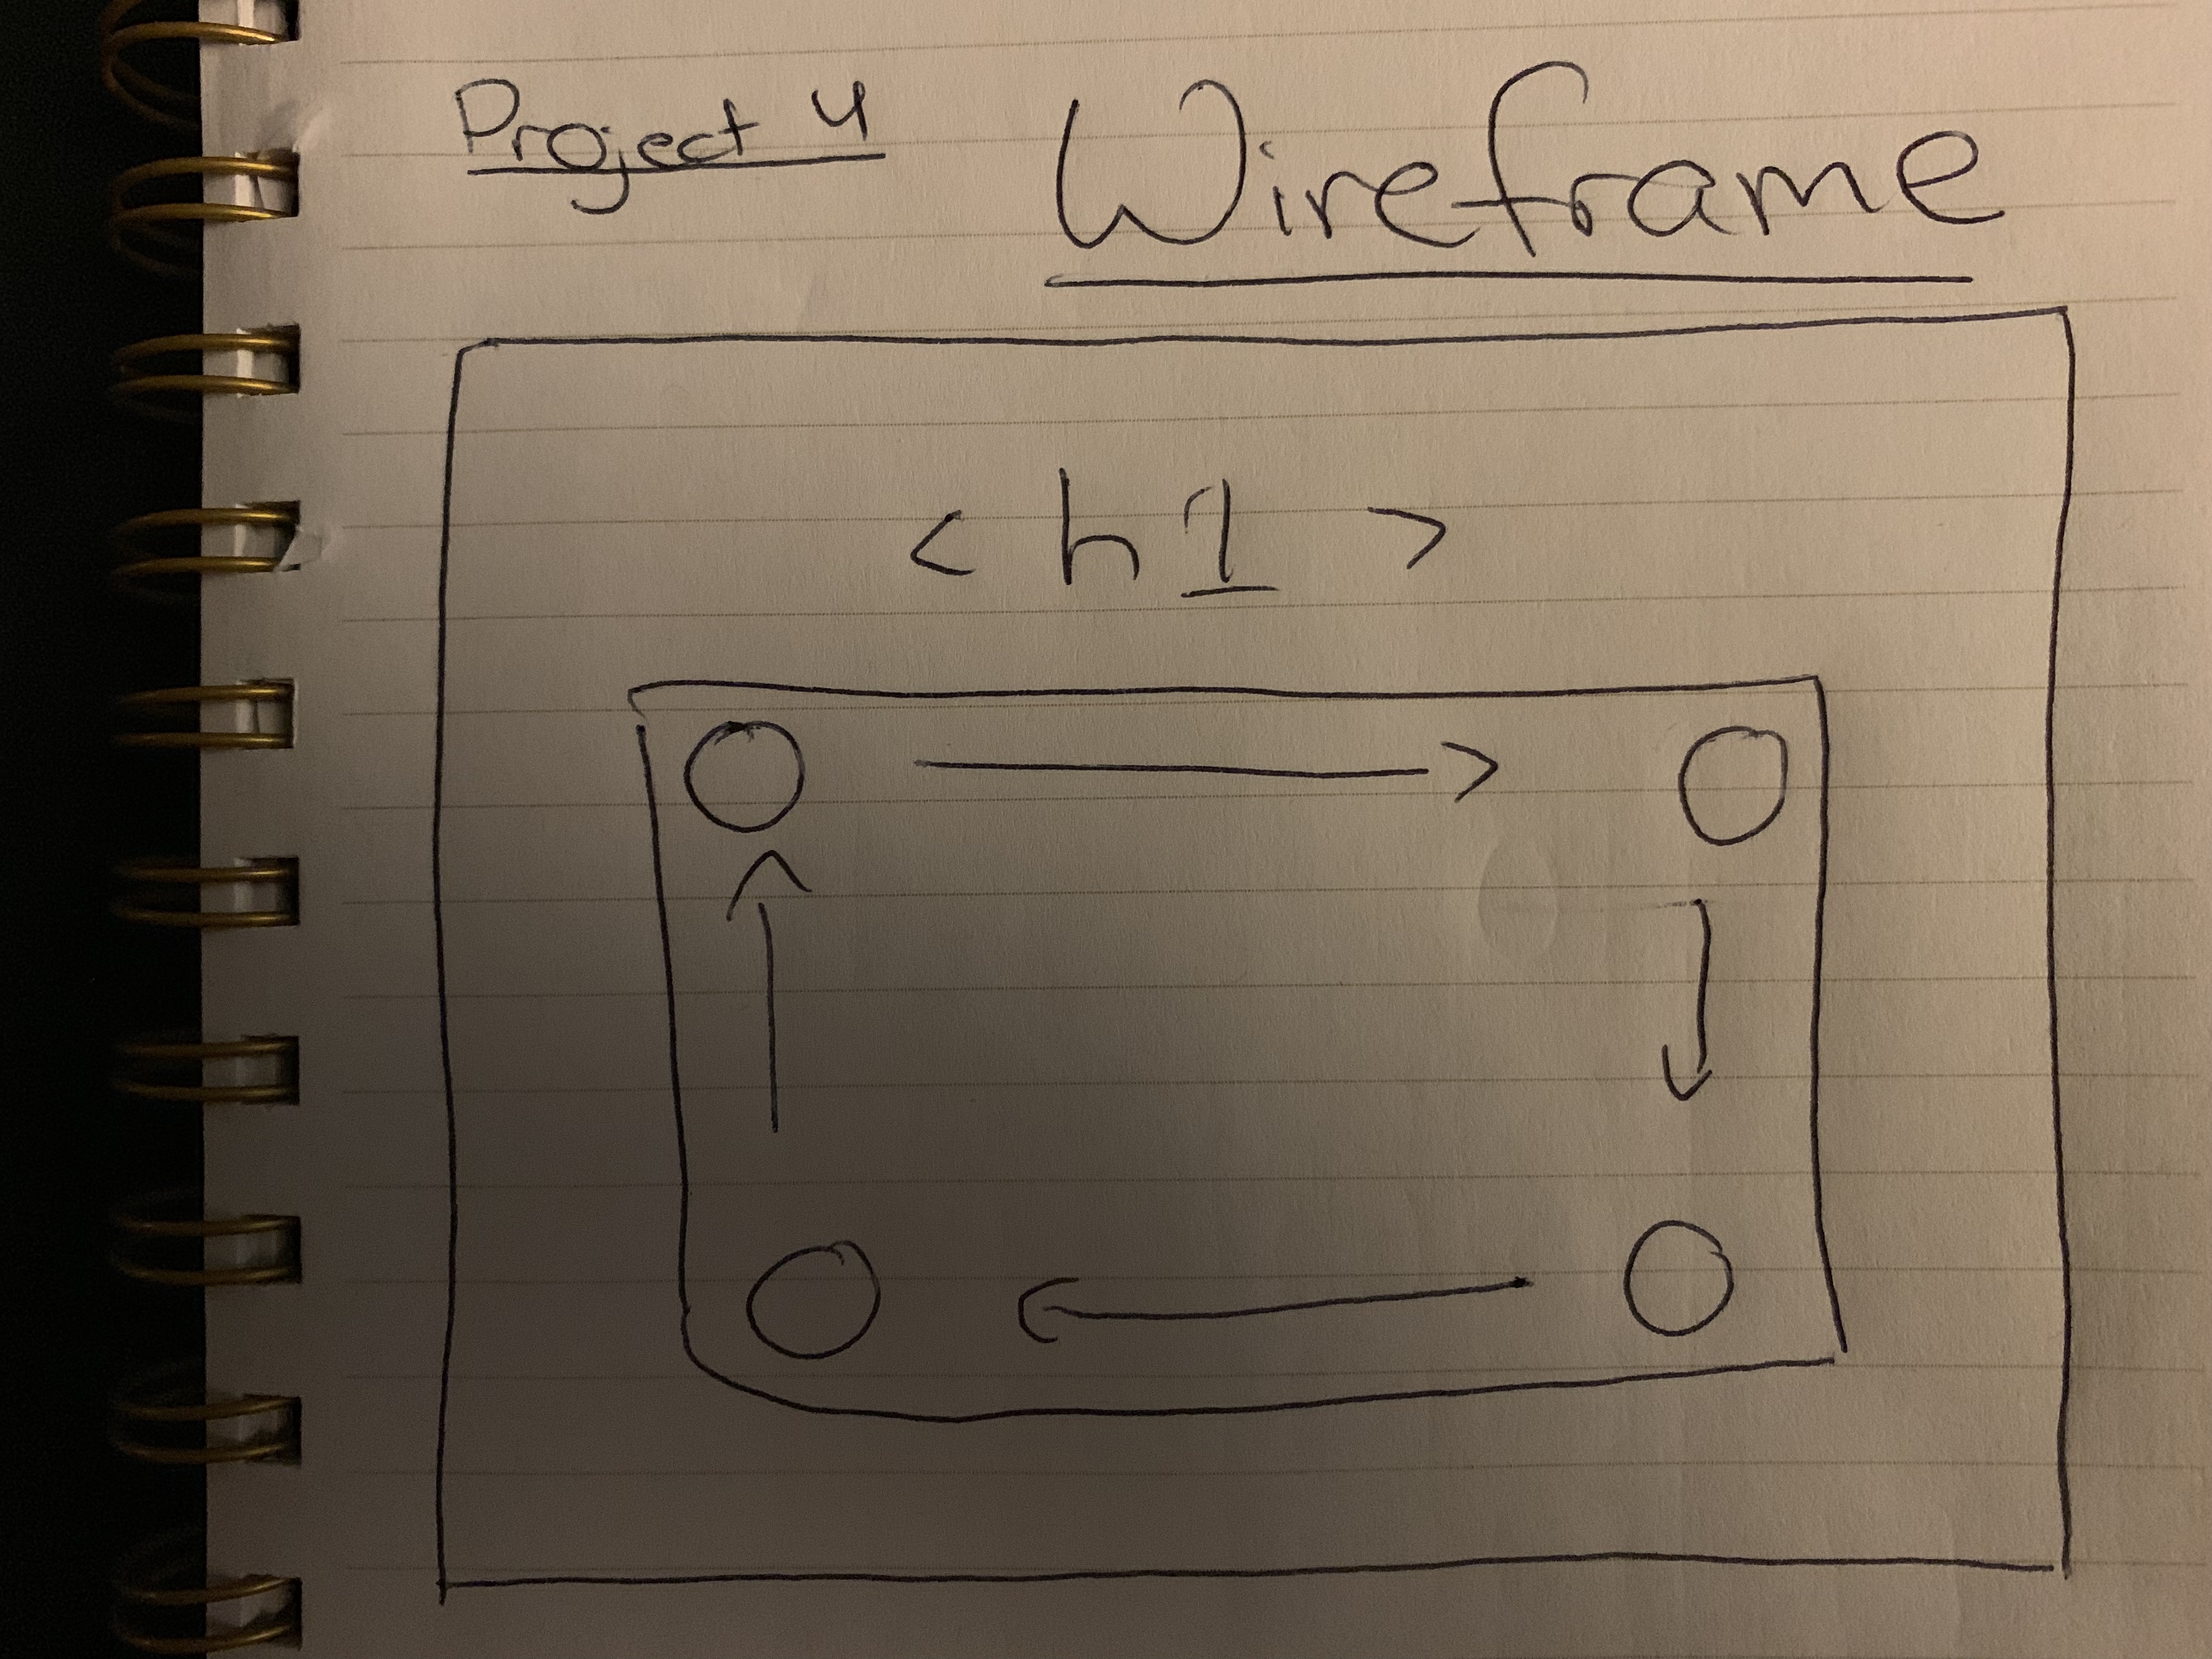 Project 4
Wireframe
< h1 >